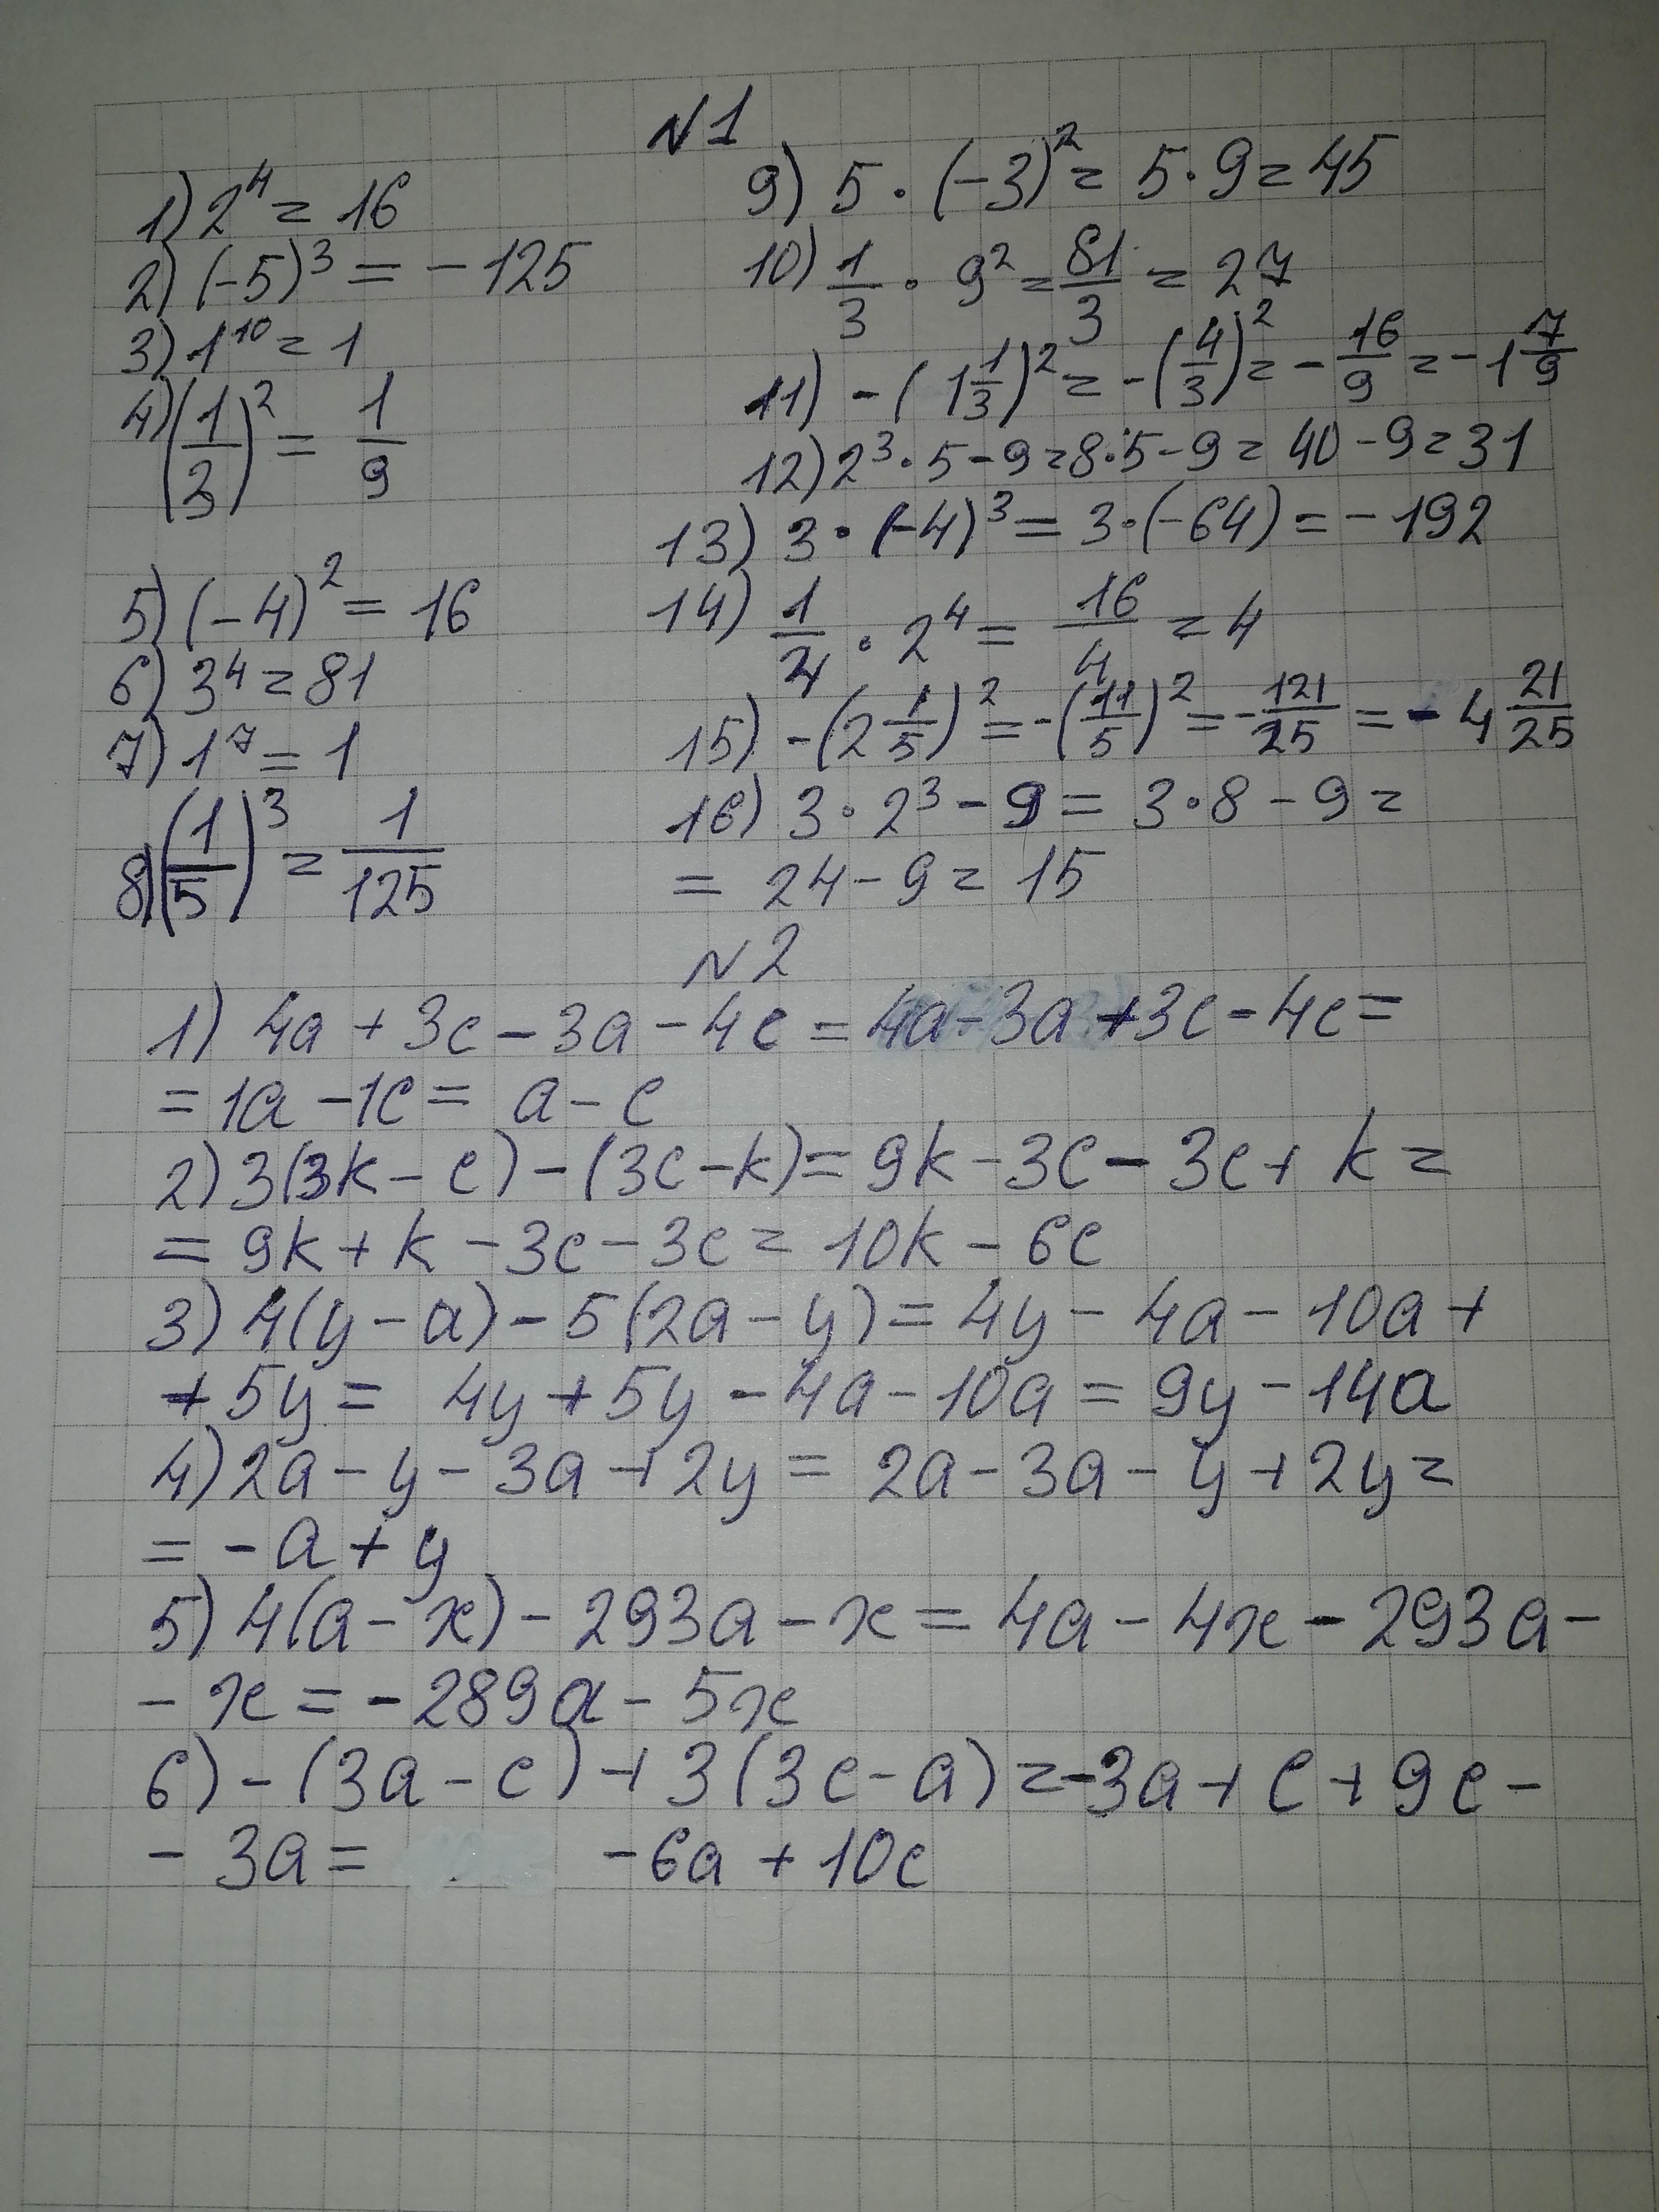 №1
1) 2⁴ = 16
2) (-5)³ = -125
3) 1¹⁰ = 1
4) (1/3)² = 1/9
5) (-4)² = 16
6) 3⁴ = 81
7) 1⁷ = 1
8) (1/5)³ = 1/125
9) 5 · (-3)² = 5 · 9 = 45
10) 1/3 · 9² = 81/3 = 27
11) -(1 1/3)² = -(4/3)² = -16/9 = -1 7/9
12) 2³ · 5 - 9 = 8 · 5 - 9 = 40 - 9 = 31
13) 3 · (-4)³ = 3 · (-64) = -192
14) 1/4 · 2⁴ = 16/4 = 4
15) -(2 1/5)² = -(11/5)² = -121/25 = -4 21/25
16) 3 · 2³ - 9 = 3 · 8 - 9 =
= 24 - 9 = 15
№2
1) 4a + 3c - 3a - 4c = 4a - 3a + 3c - 4c =
= 1a - 1c = a - c
2) 3(3k - c) - (3c - k) = 9k - 3c - 3c + k =
= 9k + k - 3c - 3c = 10k - 6c
3) 4(y - a) - 5(2a - y) = 4y - 4a - 10a +
+ 5y = 4y + 5y - 4a - 10a = 9y - 14a
4) 2a - y - 3a + 2y = 2a - 3a - y + 2y =
= -a + y
5) 4(a - x) - 293a - x = 4a - 4x - 293a -
- x = -289a - 5x
6) -(3a - c) + 3(3c - a) = -3a + c + 9c -
- 3a = -6a + 10c